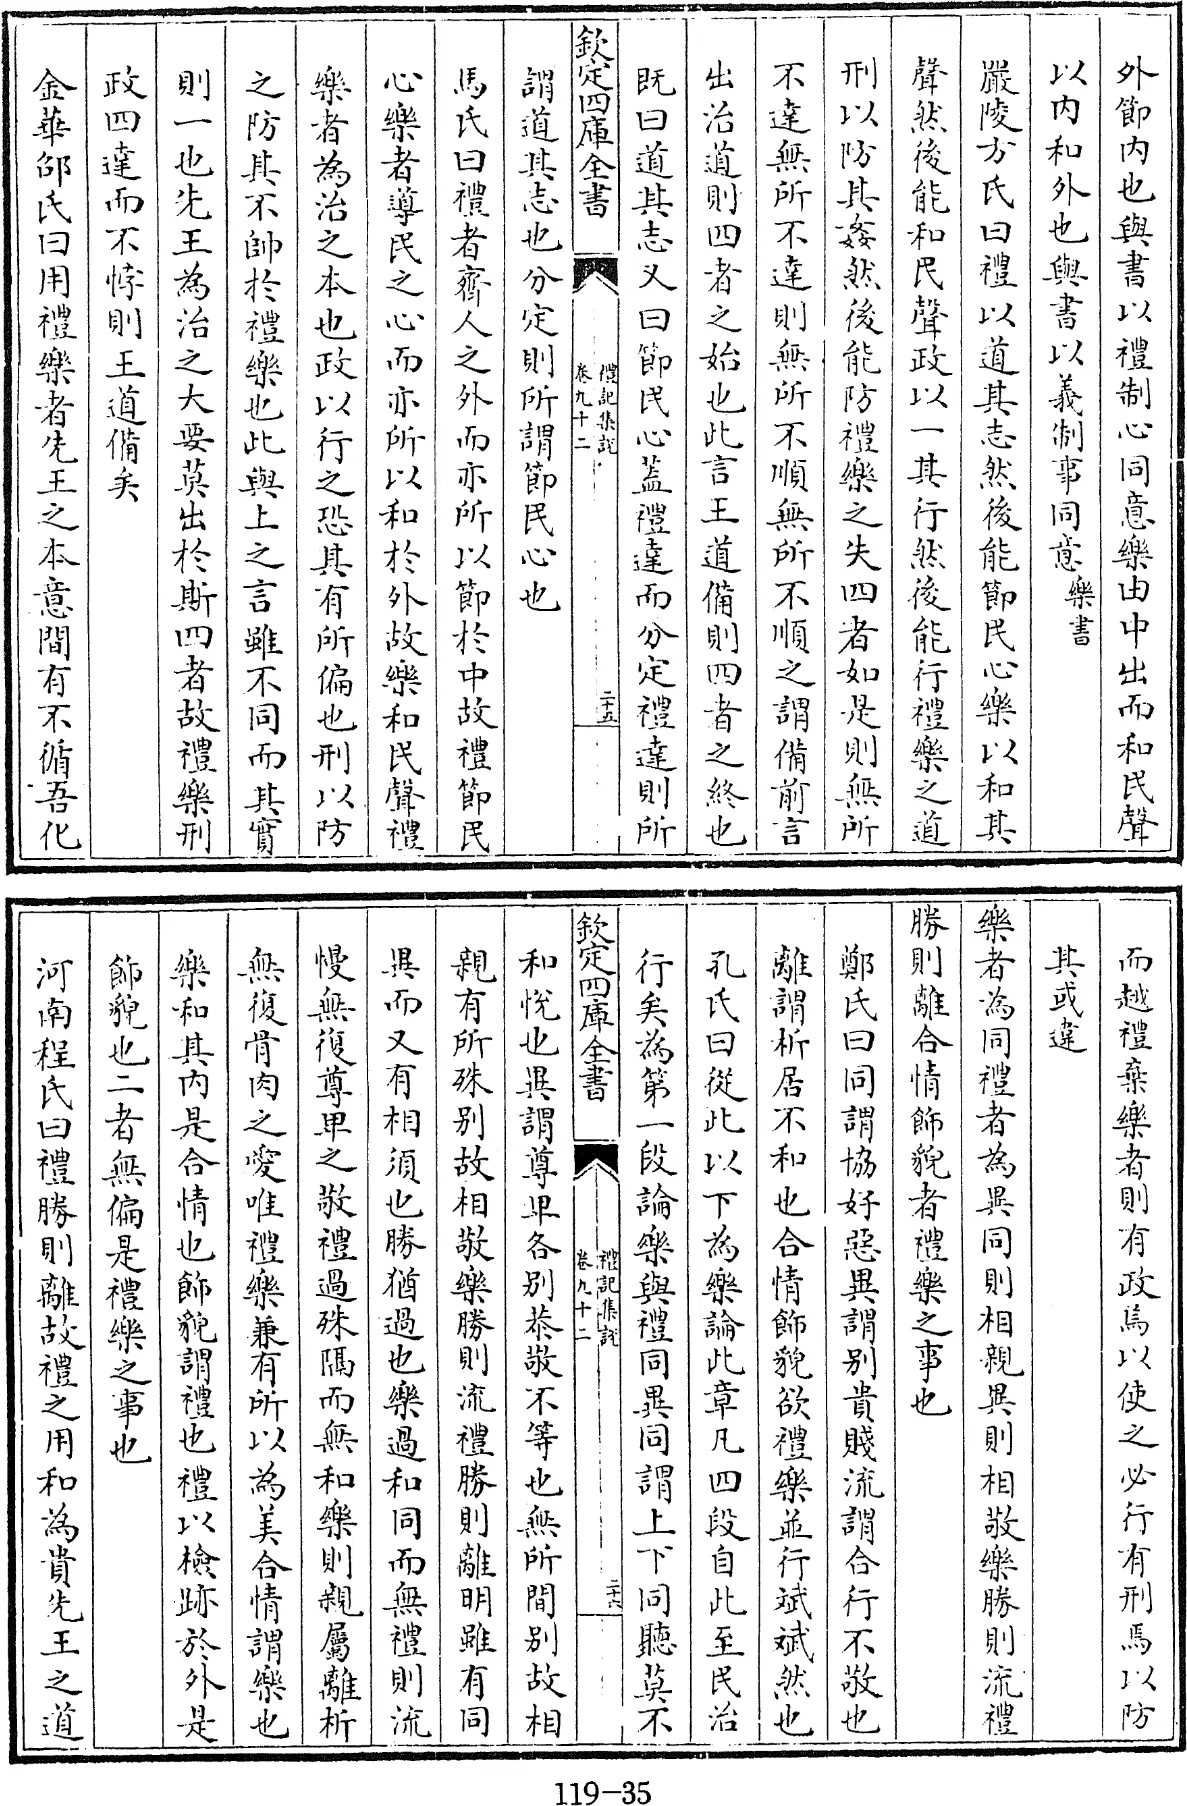 外節内也與書以禮制心同意樂由中出而和民聲
以内和外也與書以義制事同意樂書
嚴陵方氏曰禮以道其志然後能節民心樂以和其
聲然後能和民聲政以一其行然後能行禮樂之道
刑以防其姦然後能防禮樂之失四者如是則無所
不達無所不達則無所不順無所不順之謂備前言
出治道則四者之始也此言王道備則四者之終也
既曰道其志又曰節民心蓋禮達而分定禮達則所
欽定四庫全書
禮記集説
卷九十二
二十五
謂道其志也分定則所謂節民心也
馬氏曰禮者齊人之外而亦所以節於中故禮節民
心樂者導民之心而亦所以和於外故樂和民聲禮
樂者為治之本也政以行之恐其有所偏也刑以防
之防其不帥於禮樂也此與上之言雖不同而其實
則一也先王為治之大要莫出於斯四者故禮樂刑
政四達而不悖則王道備矣
金華邵氏曰用禮樂者先王之本意間有不循吾化
而越禮棄樂者則有政焉以使之必行有刑焉以防
其或違
樂者為同禮者為異同則相親異則相敬樂勝則流禮
勝則離合情飾貌者禮樂之事也
鄭氏曰同謂協好惡異謂别貴賤流謂合行不敬也
離謂析居不和也合情飾貌欲禮樂並行斌斌然也
孔氏曰從此以下為樂論此章凡四段自此至民治
行矣為第一段論樂與禮同異同謂上下同聽莫不
欽定四庫全書
禮記集説
卷九十二
二十六
和悅也異謂尊卑各别恭敬不等也無所間别故相
親有所殊别故相敬樂勝則流禮勝則離明雖有同
異而又有相須也勝猶過也樂過和同而無禮則流
慢無復尊卑之敬禮過殊隔而無和樂則親屬離析
無復骨肉之愛唯禮樂兼有所以為美合情謂樂也
樂和其内是合情也飾貌謂禮也禮以檢跡於外是
飾貌也二者無偏是禮樂之事也
河南程氏曰禮勝則離故禮之用和為貴先王之道
119-35